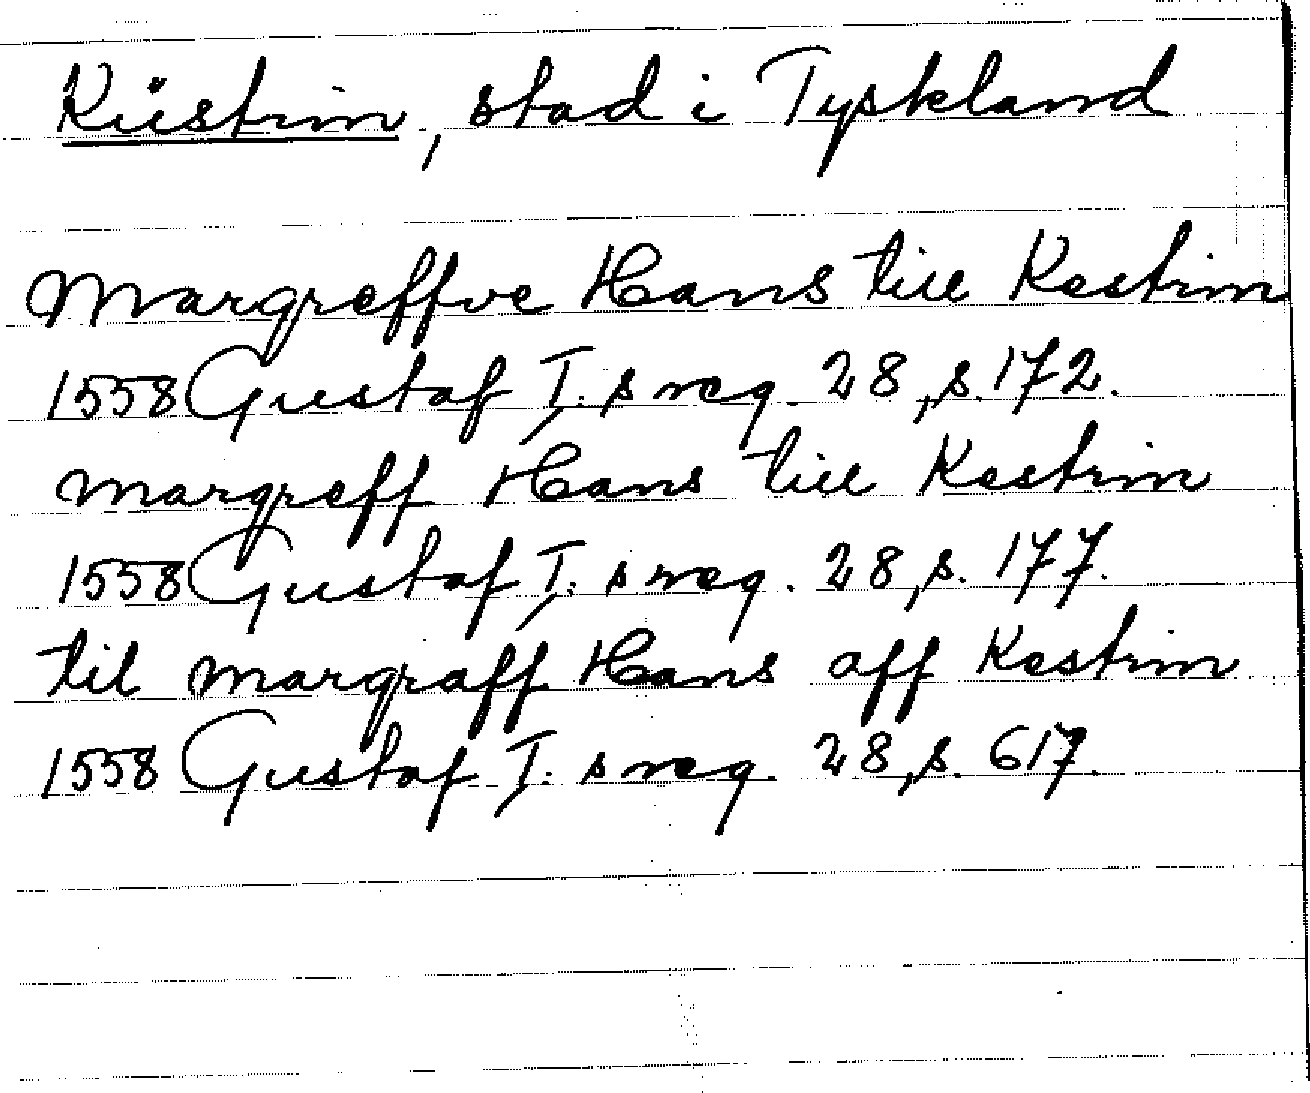 Küstrin, stad i Tyskland
Margreffve Hans till Kestrin
1558 Gustaf I:s reg. 28, s. 172.
margreff Hans till Kestrin
1558 Gustaf I:s reg. 28, s. 177.
til margraff Hans aff Kestrin
1558 Gustaf I:s reg. 28, s. 617.